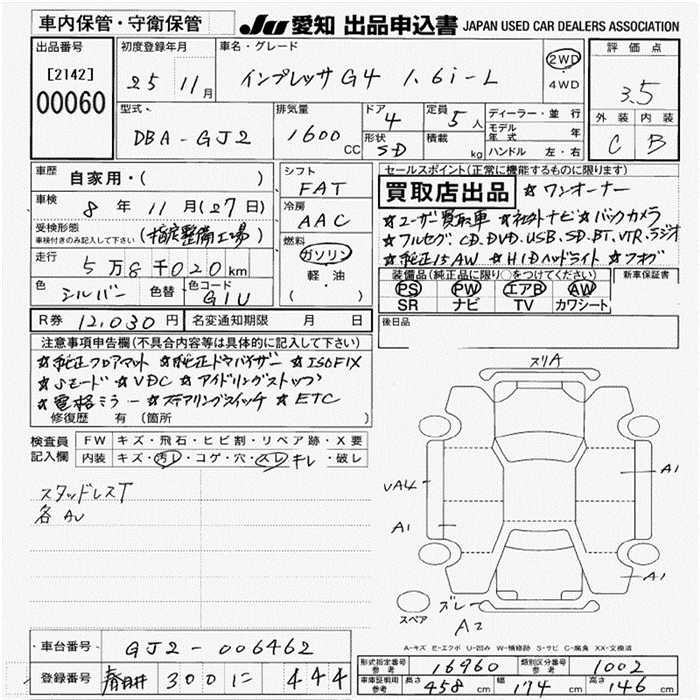 車内保管・守衛保管
JU 愛知 出品申込書 JAPAN USED CAR DEALERS ASSOCIATION
出品番号 初度登録年月 車名・グレード 評価点
[2142] 25 11月 インプレッサ G4 1.6i-L 2WD ・ 4WD 3.5
00060
型式 排気量 ドア 定員 ディーラー・並行 外装 内装
DBA-GJ2 1600CC 4 5人 モデル年式 年 C B
形状 SD 積載 kg ハンドル 左・右
車歴 自家用・( ) シフト FAT
セールスポイント(正常に機能するものに限ります)
買取店出品 ☆ワンオーナー
車検 8年 11月 (27日) 冷房 AAC
☆ユーザー買取車 ☆社外ナビ ☆バックカメラ
受検形態 車検付きのみ記入して下さい (指定整備工場) 燃料 ガソリン・軽油 ( )
☆フルセグ CD.DVD.USB.SD.BT.VTR.ラジオ
☆純正15AW ☆HIDヘッドライト ☆フォグ
走行 5万8千020km
装備品(純正品に限り○をつけてください) 新車保証書
色 シルバー 色替 色コード G1U
PS PW エアB AW
SR ナビ TV カワシート
R券 12,030円 名変通知期限 月 日
後日品
注意事項申告欄(不具合内容等は具体的に記入して下さい)
☆純正フロアマット ☆純正ドアバイザー ☆ISOFIX
☆Sモード ☆VDC ☆アイドリングストップ
☆電格ミラー ☆ステアリングスイッチ ☆ETC
修復歴 有(箇所 )
検査員記入欄 FW キズ・飛石・ヒビ割・リペア跡・X要
内装 キズ・汚レ・コゲ・穴・スレ キレ・破レ
スタッドレスT
スリA
UA4
A1
A1
A1
ズレ
A2
スペア
A-キズ E-エクボ U-凹み W-補修跡 S-サビ C-腐食 XX-交換済
車台番号 GJ2-006462
登録番号 春日井 300 に 444
形式指定番号 参考 16960 類別区分番号 参考 1002
車庫証明用 参考 長さ 458cm 幅 174cm 高さ 146cm